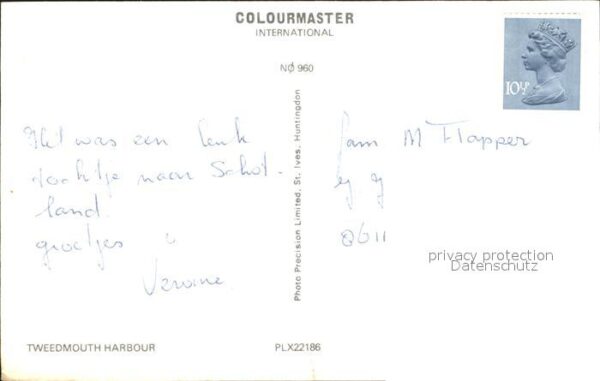 COLOURMASTER
INTERNATIONAL
NO 960
10½P
Het was een leuk
tochtje naar Schot-
land.
groetjes
Photo Precision Limited, St. Ives, Huntingdon
Fam M Flapper
privacy protection
Datenschutz
TWEEDMOUTH HARBOUR
PLX22186